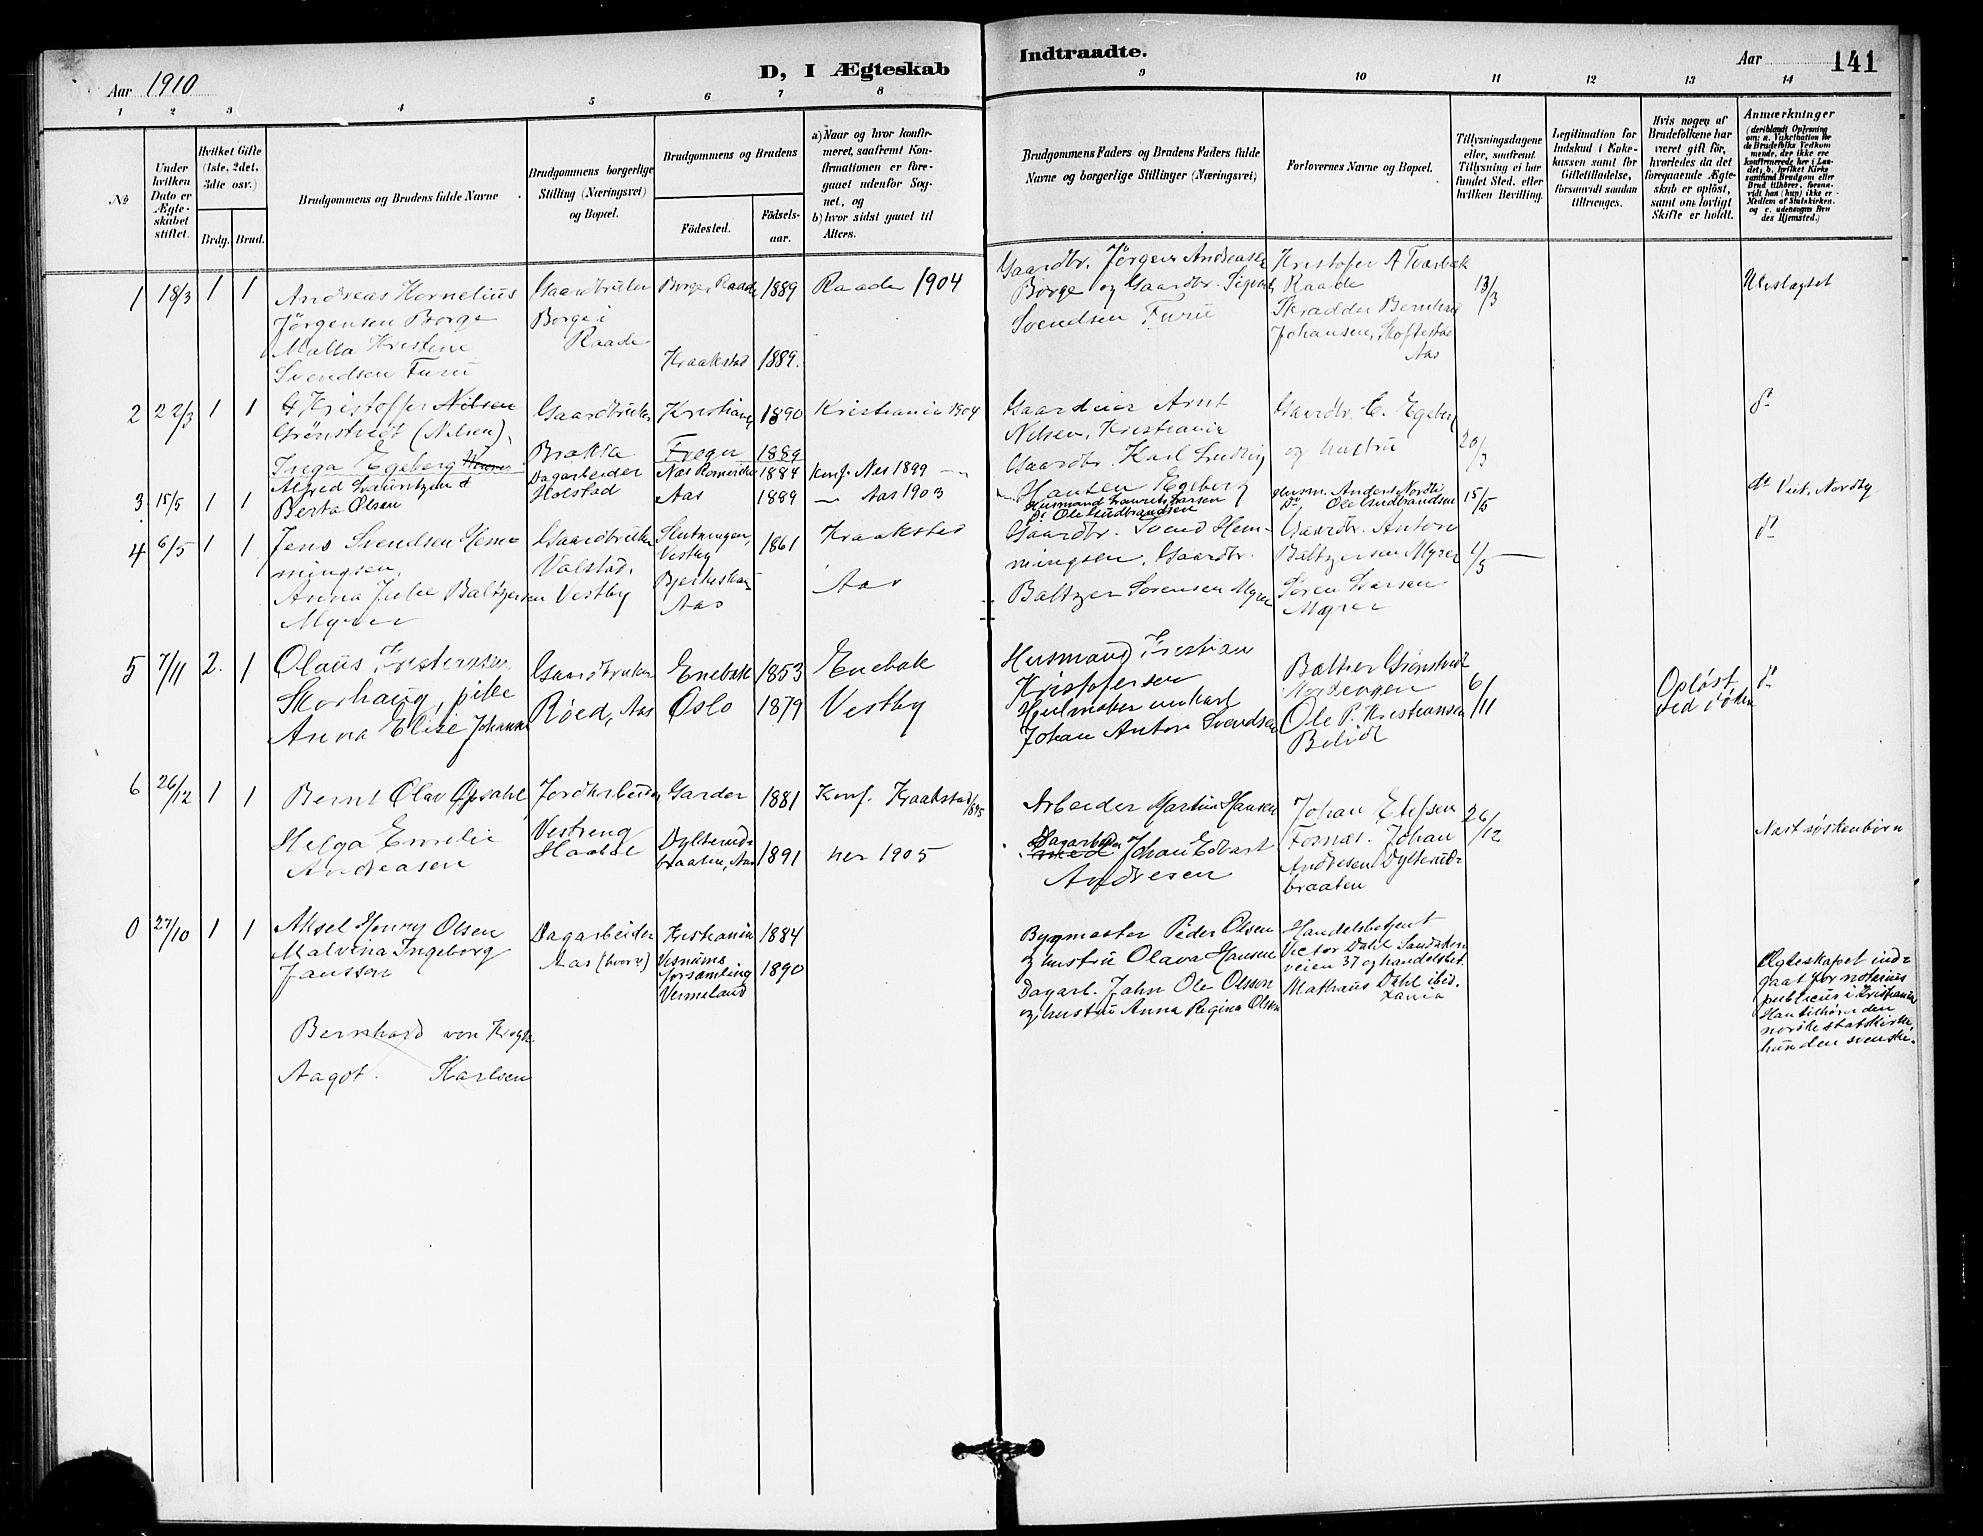 Aar 1910
D, I Ægteskab
Indtraadte.
Aar
141
1 2 3 4 5 6 7 8
9 10 11 12 13 14
No
Under hvilken Dato er Ægteskabet stiftet.
Hvilket Gifte (1ste, 2det, 3die osv.)
Brdg. Brud.
Brudgommens og Brudens fulde Navne
Brudgommens borgerlige Stilling (Næringsvei) og Bopæl.
Brudgommens og Brudens
Födested.
Födselsaar.
a) Naar og hvor konfirmeret, saafremt Konfirmationen er foregaaet udenfor Sognet, og
b) hvor sidst gaaet til Alters.
Brudgommens Faders og Brudens Faders fulde Navne og borgerlige Stillinger (Næringsvei)
Forlovernes Navne og Bopæl.
Tillysningsdagene eller, saafremt Tillysning ei har fundet Sted, efter hvilken Bevilling.
Legitimation for Indskud i Enkekassen samt for Giftetilladelse, forsaavidt saadan tiltrænges.
Hvis nogen af Brudefolkene har været gift før, hvorledes da det foregaaende Ægteskab er oplöst, samt om lovligt Skifte er holdt.
Anmærkninger
1 18/3 1 1
Andreas Kornelius
Jörgensen Borge
Malla Kristene
Svendsen Furu
Gaardbruker
Borge i
Raade
Borge, Raade 1889
Kraakstad 1889.
Raade 1904
Gaardbr. Jörgen Andreasen
Borge og Gaardbr.
Svendsen Furu
Kristofer A
Raade
Skrædder Bernhard
Johansen,
Aas
13/3
Ubeslægtet
2 22/3 1 1
Kristoffer Nilsen
Grönstvedt (Nilsen)
Inga Egeberg
Gaardbruker
Brekke
Kristiania 1890
Frogn 1889
Kristiania 1904
Gaardeier Arnt
Nilsen, Kristiania
Gaardbr. Karl Ludvig
Hansen Egeberg
Gaardbr. C. Egeberg
og hustru
20/3
do
3 15/5 1 1
Alfred Lauritzen &
Berta Olsen
Dagarbeider
Holstad
Nes Romerike 1884
Aas 1889
Konf. Nes 1899
— Aas 1903
Husmand Laurits Larsen
do Ole Gudbrandsen
Husm. Anders Nordbi
Do Ole Gudbrandsen
15/5
do Veit, Nordby
4 6/5 1 1
Jens Svendsen Hemmingsen,
Anna Julie Baltzersen
Myrer
Gaardbruker
Valstad,
Vestby
Vestby 1861
Aas
Kraakstad
Aas
Gaardbr. Svend Hemmingsen, Gaardbr.
Baltzer Sørensen Myrer
Gaardbr. Anton
Baltzersen Myrer
Sören Larsen
Myrer
1/5
do
5 7/11 2. 1
Olaus Kristensen
Skorhaug, pike
Anna Elise Johansen
Gaardbruker
Røed, Aas
Enebak 1853
Oslo 1879
Enebak
Vestby
Husmand Kristian
Kristofersen
Hjulmaker
Johan Anton Svendsen
Nordengen
Ole P. Kristiansen
6/11
Opløst
ved døden
do
6 26/12 1 1
Bernt Olav Opsahl
Helga Emelie
Andreasen
Jordarbeider
Vestreng
Haabøl
Garder 1881
braaten, Aas 1891
Konf. Kraakstad 1895
her 1905
Arbeider Martin Hansen
Dagarbeider
Johan Edvart
Andresen
Johan Elefsen
Fosnæs. Johan
Andresen Dylterudbraaten
26/12
Næstsøskenbörn
0 27/10 1 1
Aksel Henry Olsen
Malvina Ingeborg
Jansson
Dagarbeider
Aas (hvor?)
Kristiania 1884
Visnums
forsamling 1890
Vermeland
Bygmester Peder Olsen
og hustru Olava Hansen
Dagarb. John Ole Olsson
og hustru Anna Regina Olsson
Handelsbetjent
Victor Dahl Sandakerveien 37 og handelsbet.
Mathæus Dahl ibid.
Xania
Egteskapet indgaat for notarius
publicus i Kristiania
Han tilhører den
norske statskirke,
hun den svenske.
Bernhard von Krogh
Aagot Karlsen